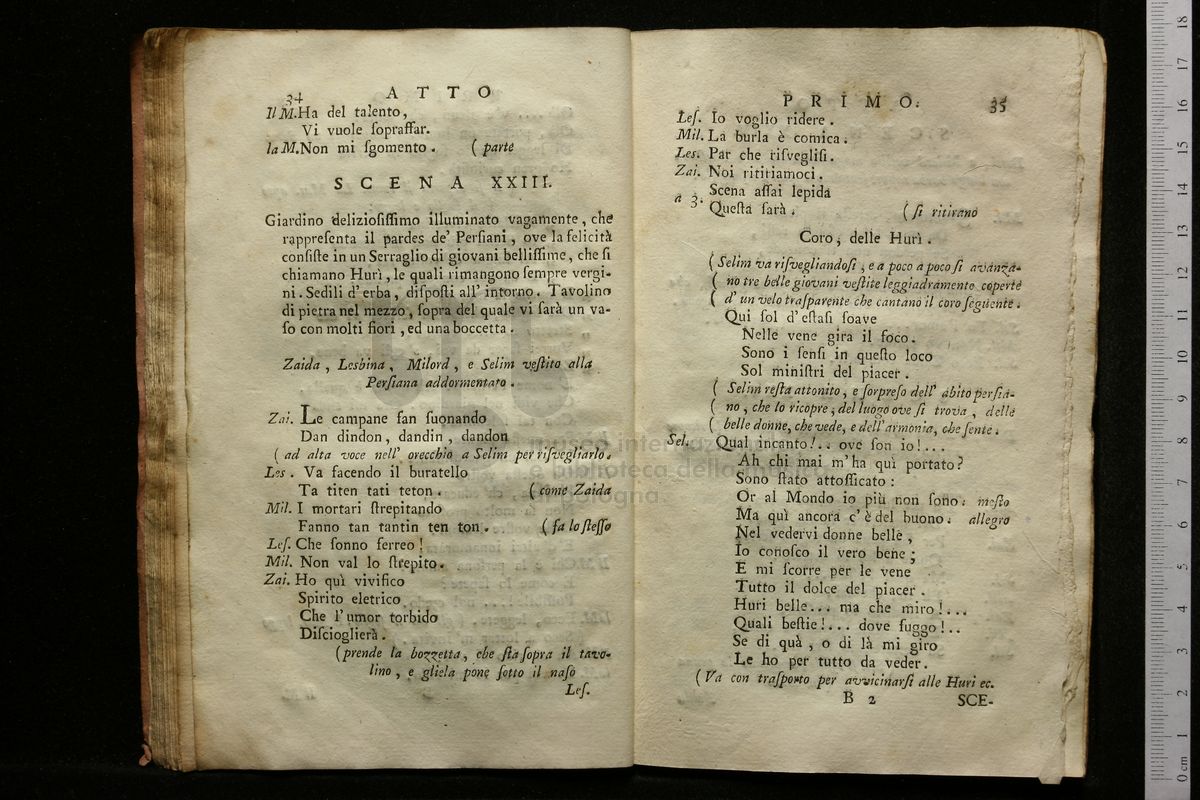 34
ATTO
Il M.Ha del talento,
Vi vuole ſopraffar.
la M.Non mi ſgomento. (parte
SCENA XXIII.
Giardino delizioſiſſimo illuminato vagamente, che
rappreſenta il pardes de' Perſiani, ove la felicità
conſiſte in un Serraglio di giovani belliſſime, che ſi
chiamano Hurì, le quali rimangono ſempre vergi-
ni. Sedili d'erba, diſpoſti all'intorno. Tavolino
di pietra nel mezzo, ſopra del quale vi ſarà un va-
ſo con molti fiori, ed una boccetta.
Zaida, Lesbina, Milord, e Selim veſtito alla
Perſiana addormentato.
Zai. Le campane fan ſuonando
Dan dindon, dandin, dandon
(ad alta voce nell' orecchio a Selim per riſvegliarlo.
Les. Va facendo il buratello
Ta titen tati teton. (come Zaida
Mil. I mortari ſtrepitando
Fanno tan tantin ten ton. (fa lo ſteſſo
Leſ. Che ſonno ferreo!
Mil. Non val lo ſtrepito.
Zai. Ho quì vivifico
Spirito eletrico
Che l'umor torbido
Diſcioglierà.
(prende la bozzetta, che ſta ſopra il tavo-
lino, e gliela pone ſotto il naſo
Leſ.
PRIMO.
35
Leſ. Io voglio ridere.
Mil. La burla è comica.
Les. Par che riſvegliſi.
Zai. Noi rititiamoci.
a 3. Scena aſſai lepida
Queſta ſarà. (ſi ritirano
Coro, delle Hurì.
(Selim va riſvegliandoſi, e a poco a poco ſi avanza-
(no tre belle giovani veſtite leggiadramento coperte
(d'un velo traſparente che cantano il coro ſeguente.
Qui ſol d'eſtaſi ſoave
Nelle vene gira il foco.
Sono i ſenſi in queſto loco
Sol miniſtri del piacer.
(Selim reſta attonito, e ſorpreſo dell' abito perſia-
(no, che lo ricopre, del luogo ove ſi trova, delle
(belle donne, che vede, e dell'armonia, che ſente.
Sel. Qual incanto!.. ove ſon io!...
Ah chi mai m'ha quì portato?
Sono ſtato attoſſicato:
Or al Mondo io più non ſono. meſto
Ma quì ancora c'è del buono. allegro
Nel vedervi donne belle,
Io conoſco il vero bene;
E mi ſcorre per le vene
Tutto il dolce del piacer.
Huri belle... ma che miro!...
Quali beſtie!... dove fuggo!..
Se di quà, o di là mi giro
Le ho per tutto da veder.
(Va con traſporto per avvicinarſi alle Huri ec.
B 2
SCE-
museo internazionale
e biblioteca della musica
bologna
0 cm 1 2 3 4 5 6 7 8 9 10 11 12 13 14 15 16 17 18